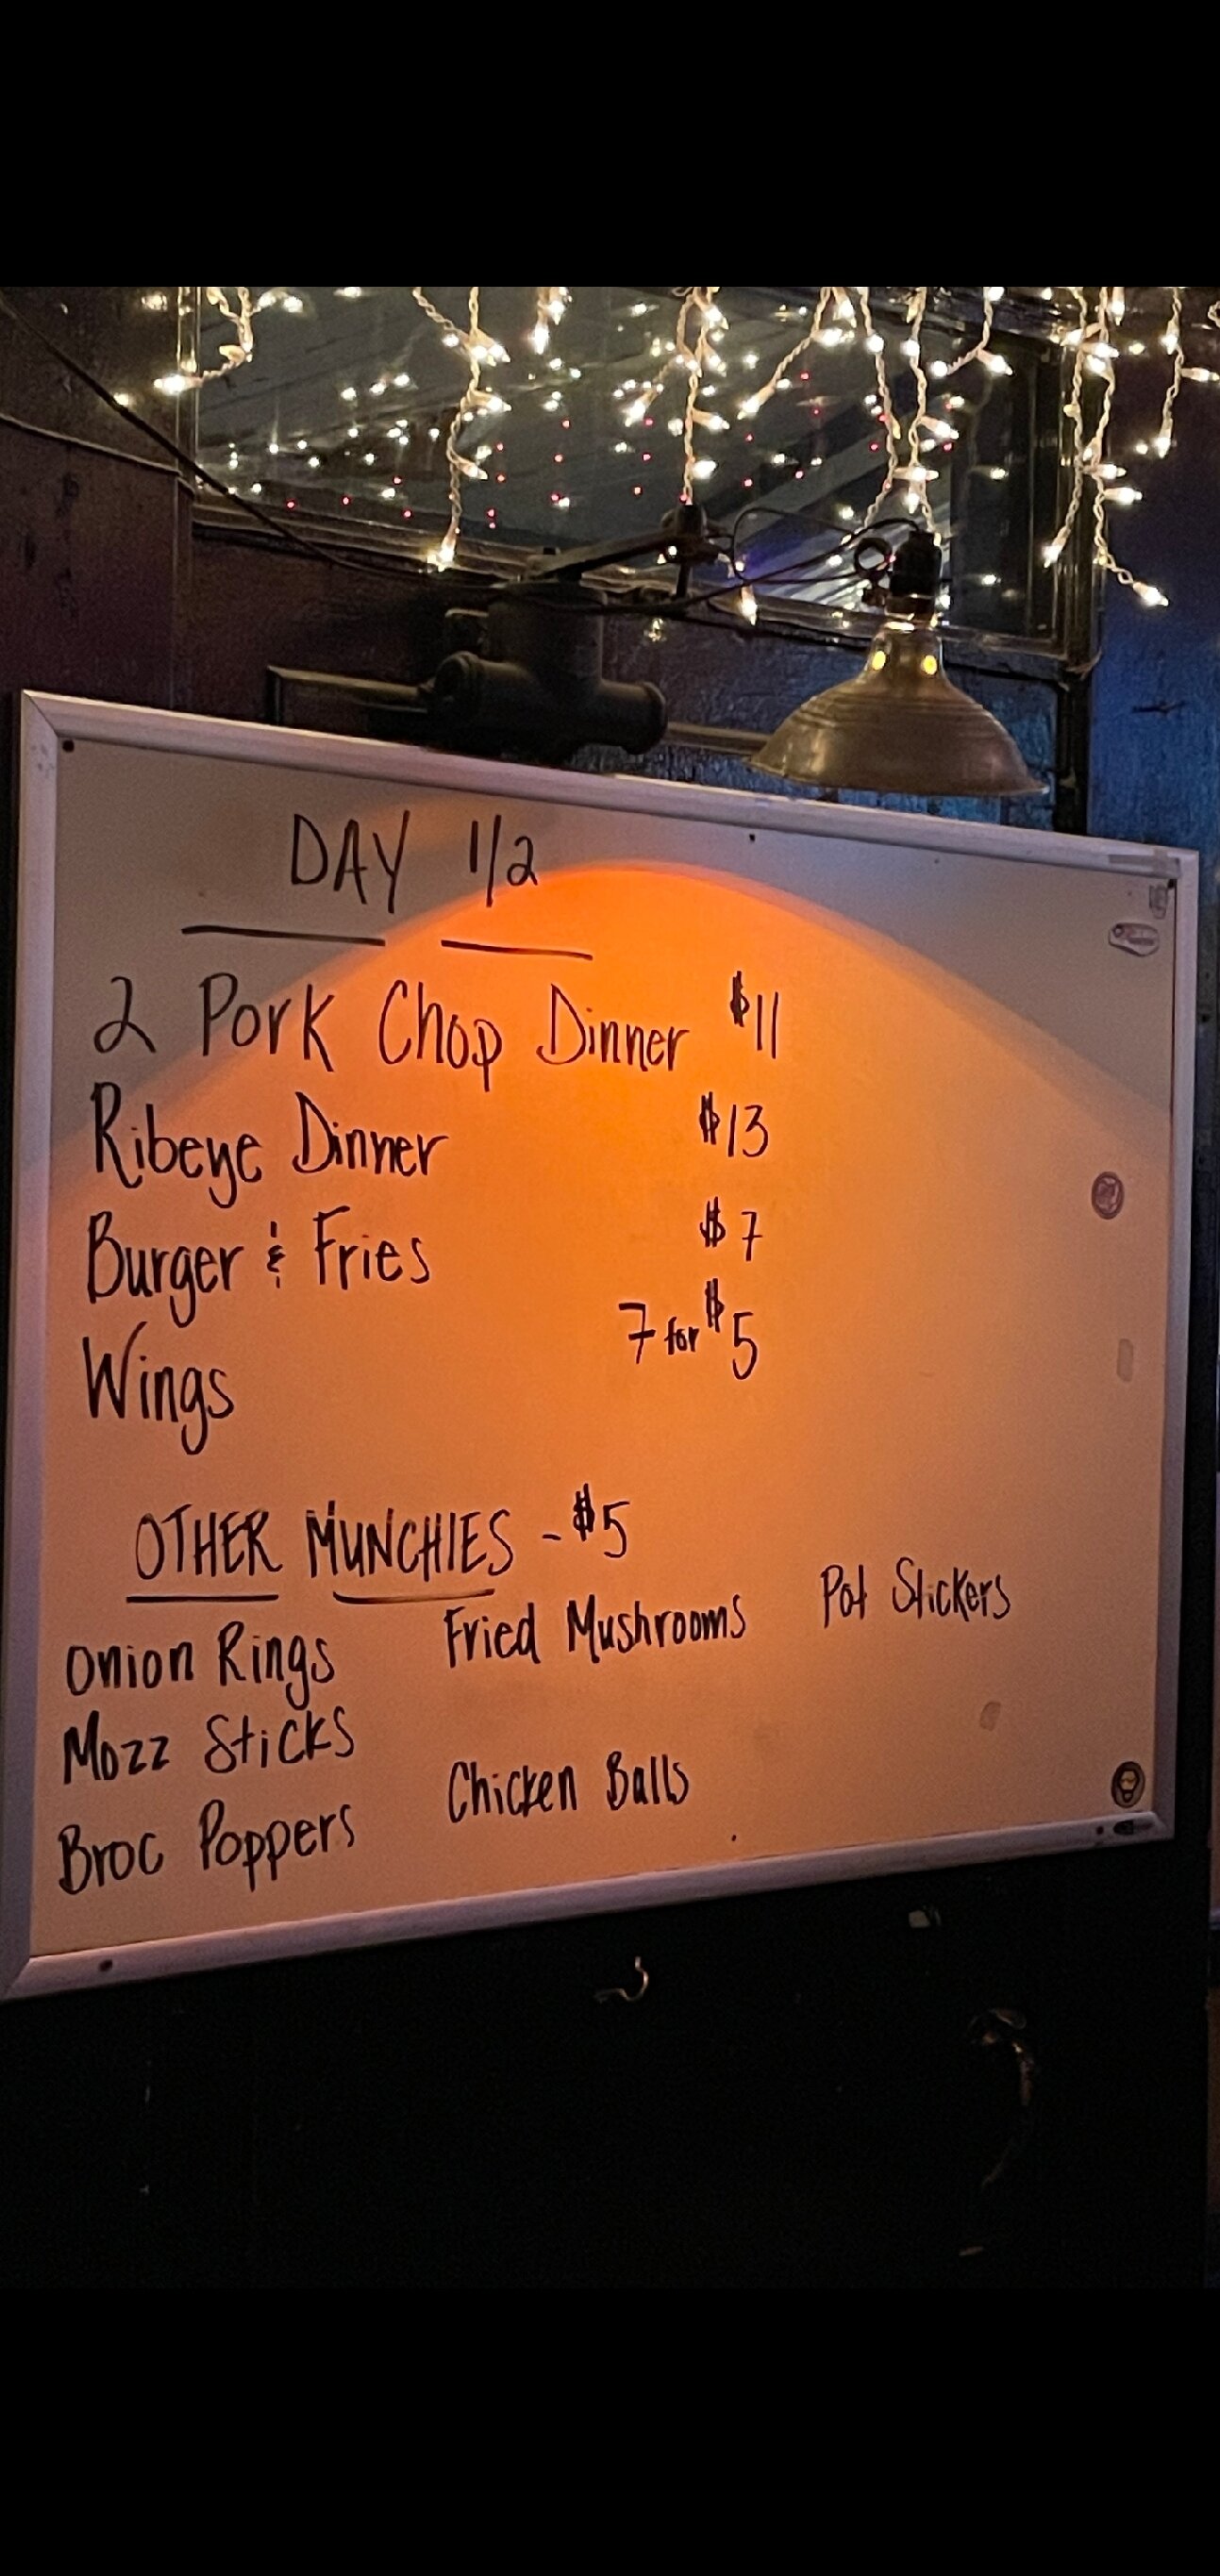 DAY 1/2
2 Pork Chop Dinner $11
Ribeye Dinner $13
Burger & Fries $7
Wings 7 for $5
OTHER MUNCHIES - $5
Onion Rings Fried Mushrooms Pot Stickers
Mozz Sticks
Broc Poppers Chicken Balls